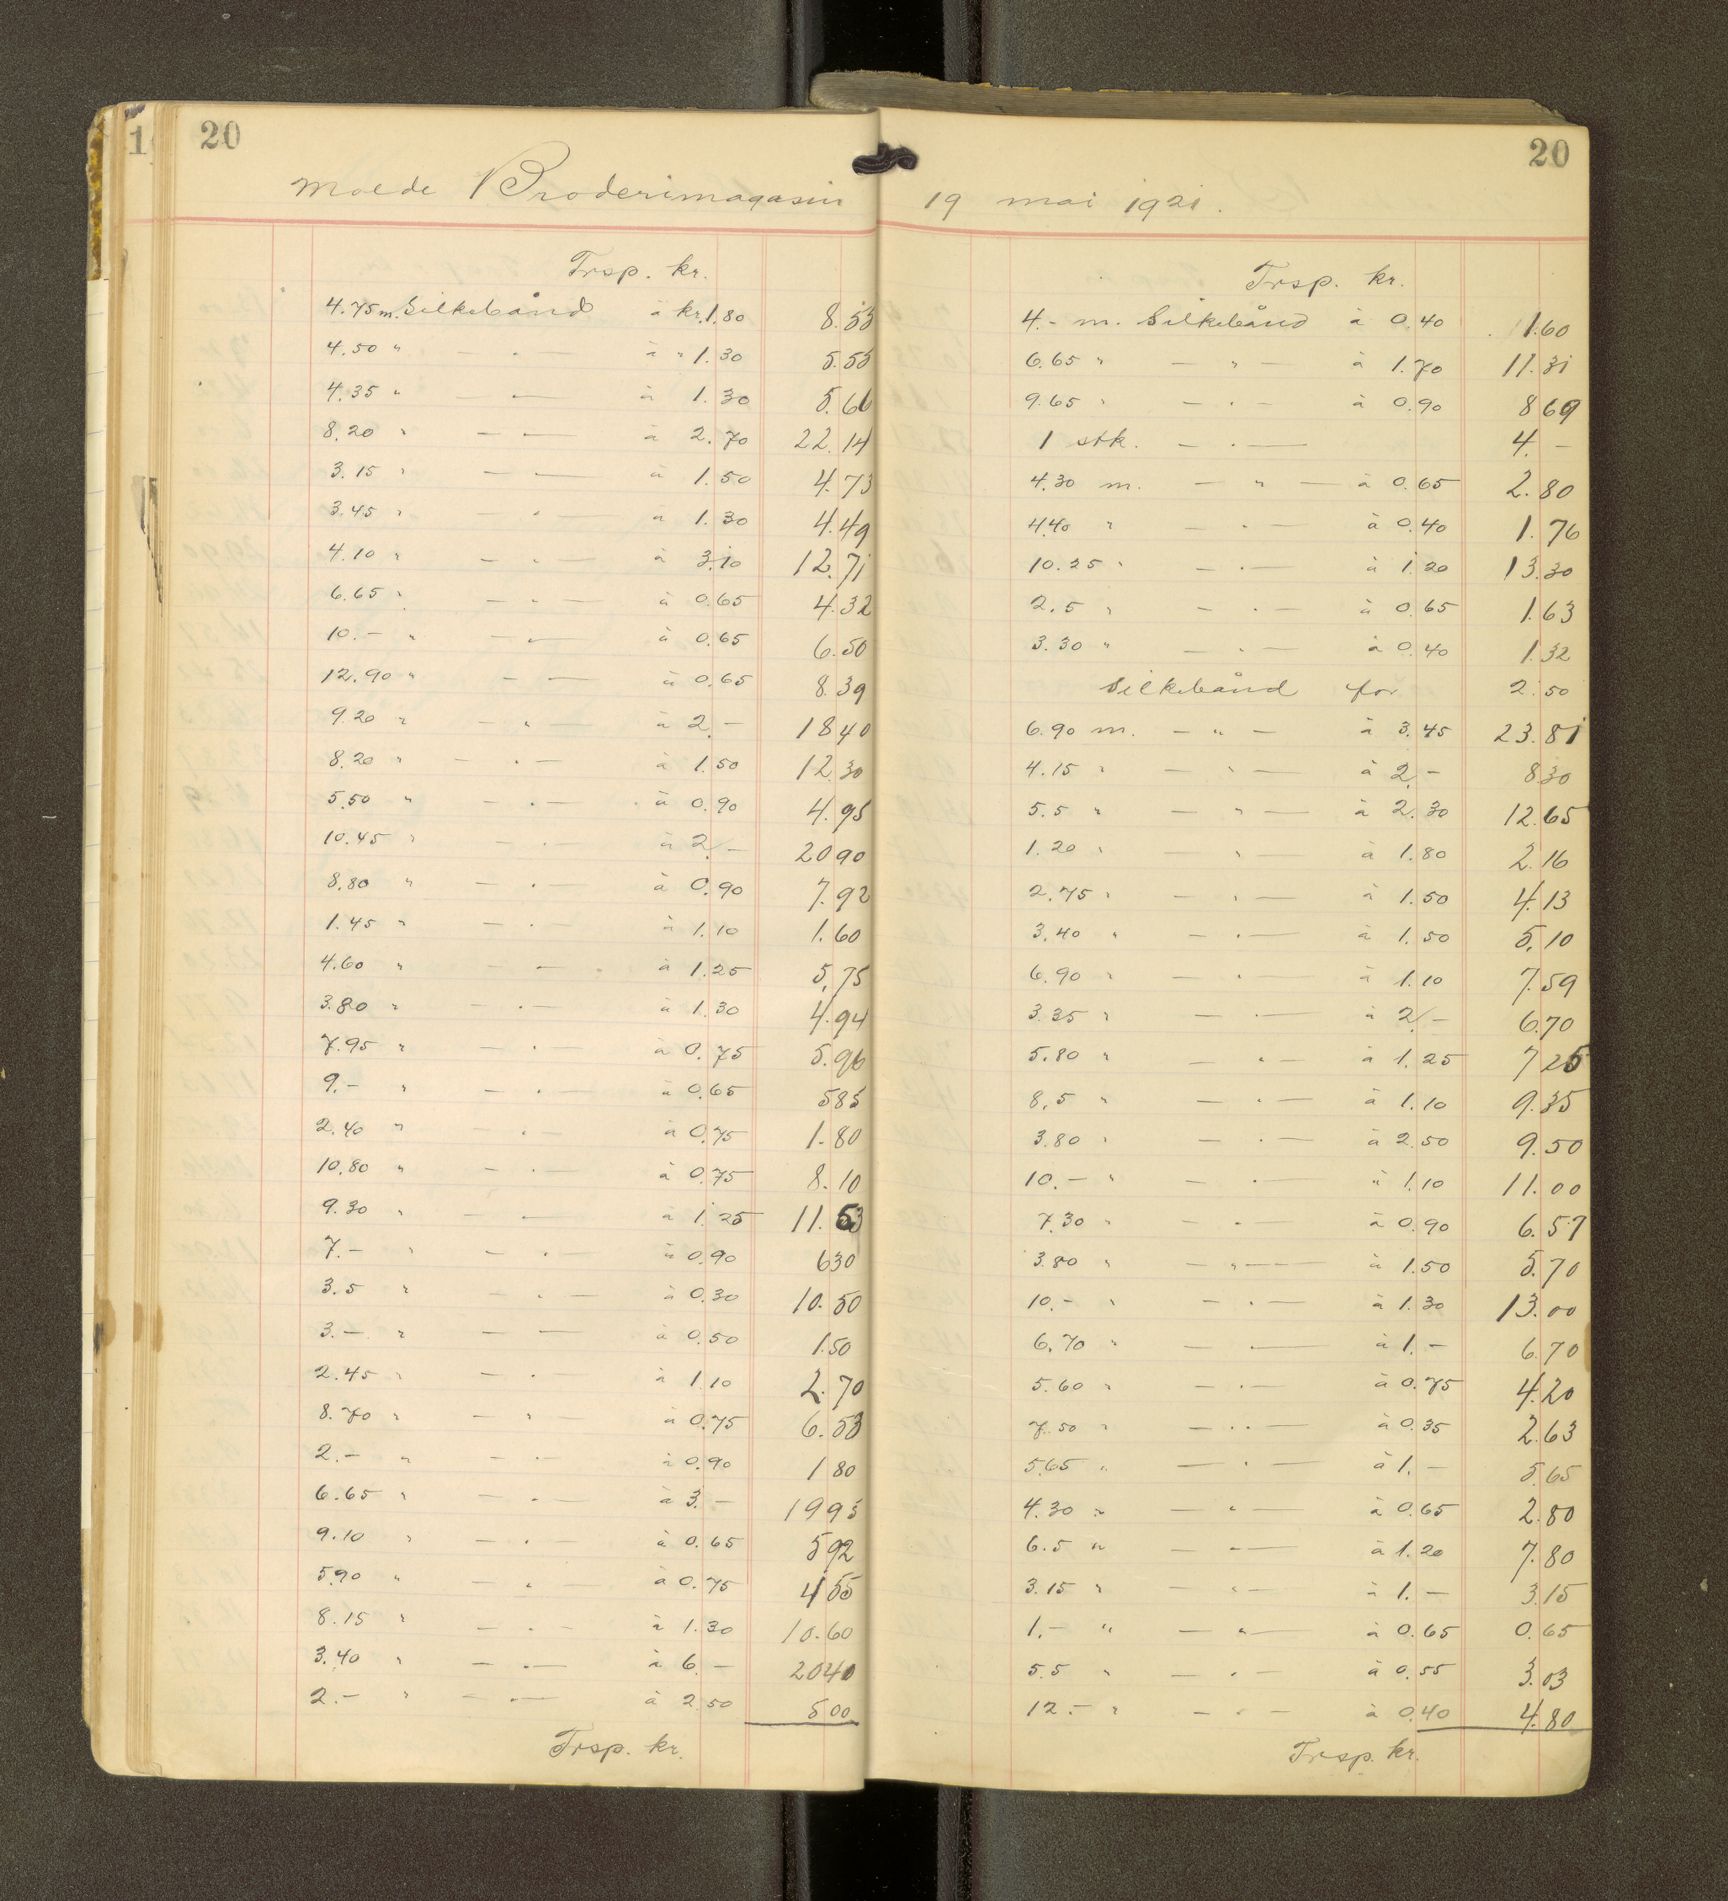 20
Molde Broderimagasin
Trsp. kr.
4.75 m. Silkebånd à kr. 1.80 8.55
4.50 " — " — à " 1.30 5.55
4.35 " — " — à 1.30 5.66
8.20 " — " — à 2.70 22.14
3.15 " — " — à 1.50 4.73
3.45 " — " — à 1.30 4.49
4.10 " — " — à 3.10 12.71
6.65 " — " — à 0.65 4.32
10.- " — " — à 0.65 6.50
12.90 " — " — à 0.65 8.39
9.20 " — " — à 2.- 18 40
8.20 " — " — à 1.50 12.30
5.50 " — " — à 0.90 4.95
10.45 " — " — à 2.- 20 90
8.80 " — " — à 0.90 7.92
1.45 " — " — à 1.10 1.60
4.60 " — " — à 1.25 5.75
3.80 " — " — à 1.30 4.94
7.95 " — " — à 0.75 5.96
9.- " — " — à 0.65 5 85
2.40 " — " — à 0.75 1.80
10.80 " — " — à 0.75 8.10
9.30 " — " — à 1.25 11.63
7.- " — " — à 0.90 6 30
3.5 " — " — à 0.30 10.50
3.- " — " — à 0.50 1.50
2.45 " — " — à 1.10 2.70
8.70 " — " — à 0.75 6.53
2.- " — " — à 0.90 1 80
6.65 " — " — à 3.- 19 95
9.10 " — " — à 0.65 5.92
5.90 " — " — à 0.75 4 55
8.15 " — " — à 1.30 10.60
3.40 " — " — à 6.- 20 40
2.- " — " — à 2.50 5 00
Trsp. kr.
20
19 mai 1921.
Trsp. kr.
4.- m. Silkebånd à 0.40 1.60
6.65 " — " — à 1.70 11.31
9.65 " — " — à 0.90 8 69
1 stk. — " — 4.-
4.30 m. — " — à 0.65 2.80
4.40 " — " — à 0.40 1.76
10.25 " — " — à 1.20 13.30
2.5 " — " — à 0.65 1.63
3.30 " — " — à 0.40 1.32
Silkebånd for 2.50
6.90 m. — " — à 3.45 23.81
4.15 " — " — à 2.- 8.30
5.5 " — " — à 2.30 12.65
1.20 " — " — à 1.80 2.16
2.75 " — " — à 1.50 4.13
3.40 " — " — à 1.50 5.10
6.90 " — " — à 1.10 7.59
3.35 " — " — à 2.- 6.70
5.80 " — " — à 1.25 7 25
8.5 " — " — à 1.10 9.35
3.80 " — " — à 2.50 9.50
10.- " — " — " 1.10 11.00
7.30 " — " à 0.90 6.57
3.80 " — " — à 1.50 5.70
10.- " — " — à 1.30 13.00
6.70 " — " — à 1.- 6.70
5.60 " — " — à 0.75 4.20
7.50 " — " — à 0.35 2.63
5.65 " — " — à 1.- 5.65
4.30 " — " — à 0.65 2.80
6.5 " — " — à 1.20 7.80
3.15 " — " — à 1.- 3.15
1.- " — " — à 0.65 0.65
5.5 " — " — à 0.55 3.03
12.- " — " — à 0.40 4.80
Trsp. kr.